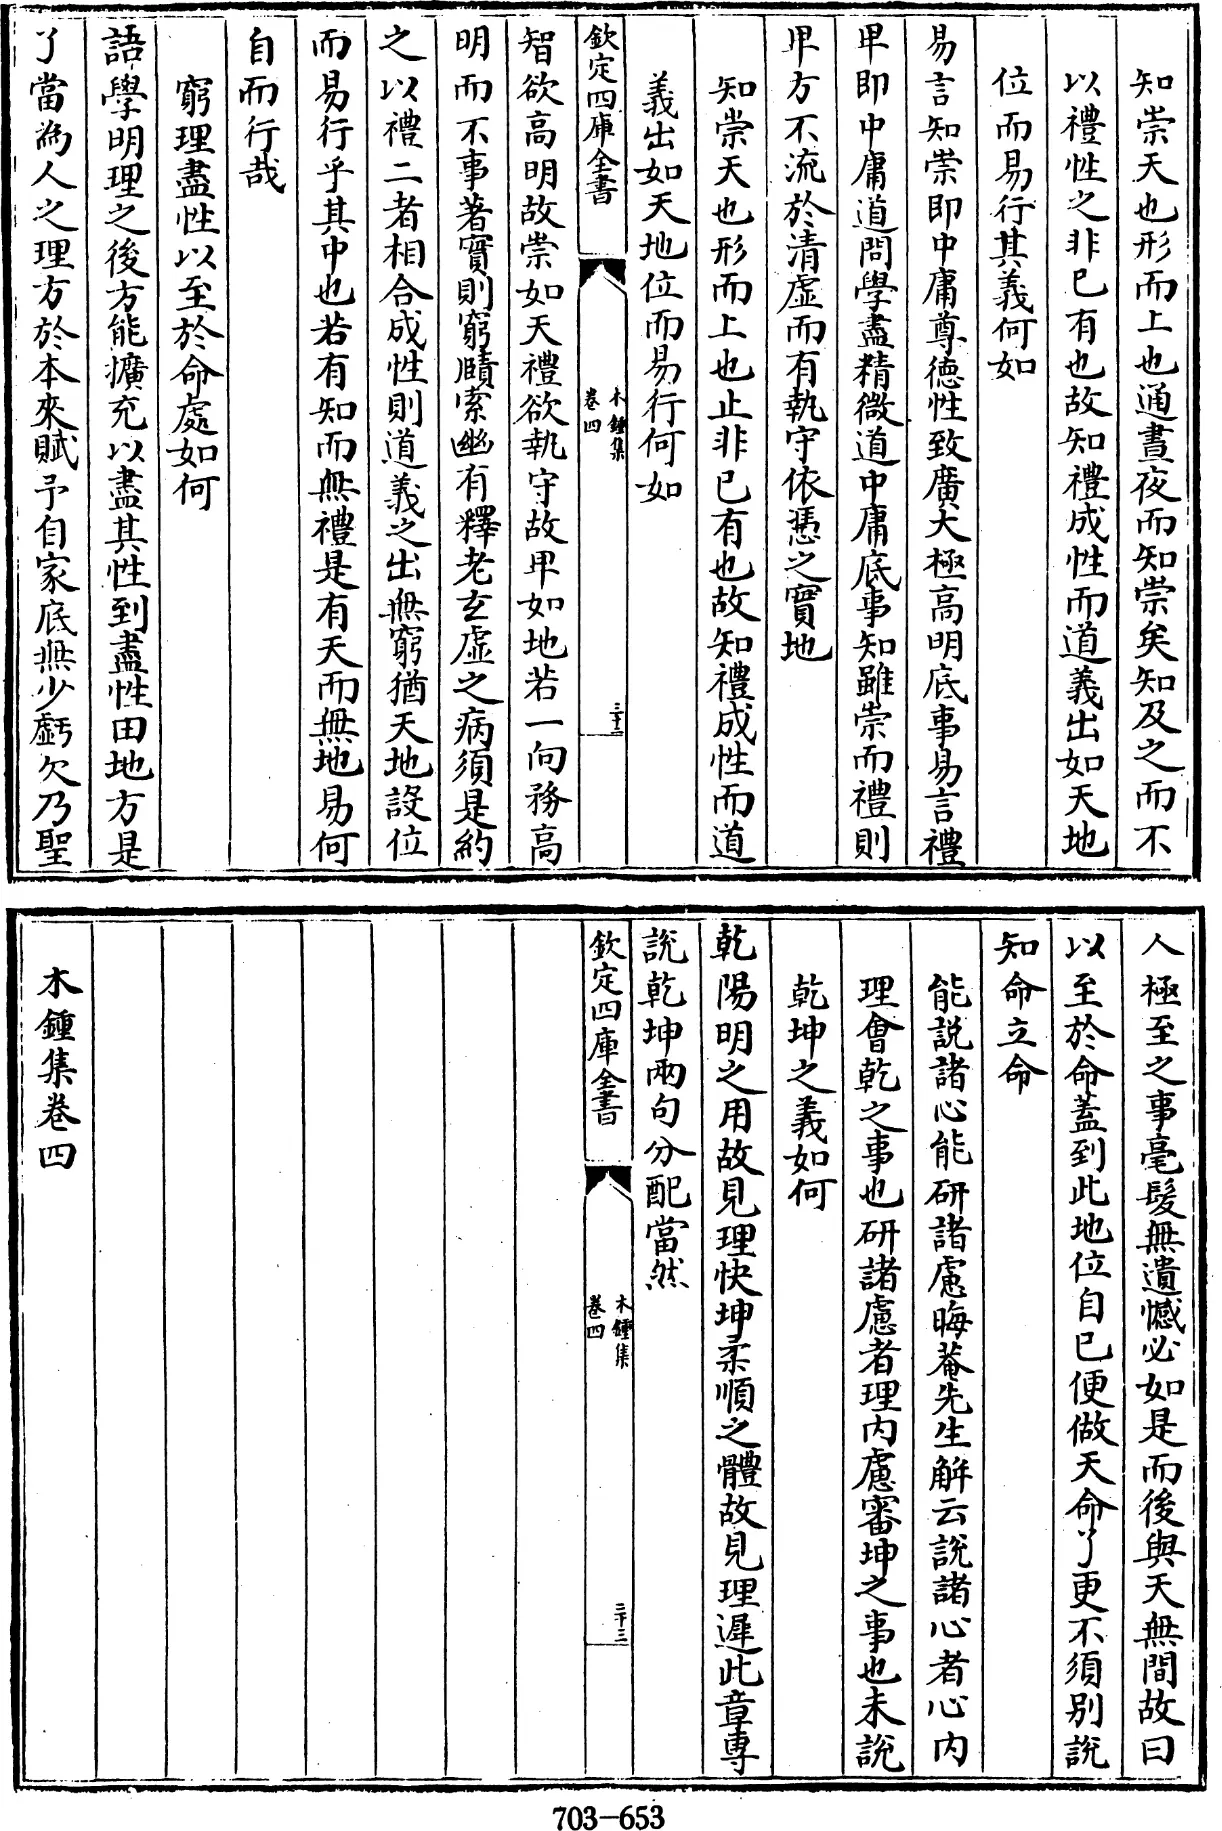 知崇天也形而上也通晝夜而知崇矣知及之而不
以禮性之非已有也故知禮成性而道義出如天地
位而易行其義何如
易言知崇即中庸尊德性致廣大極高明底事易言禮
卑即中庸道問學盡精微道中庸底事知雖崇而禮則
卑方不流於清虛而有執守依憑之實地
知崇天也形而上也止非已有也故知禮成性而道
義出如天地位而易行何如
欽定四庫全書
木鍾集
卷四
三十二
智欲高明故崇如天禮欲執守故卑如地若一向務高
明而不事著實則窮賾索幽有釋老玄虛之病須是約
之以禮二者相合成性則道義之出無窮猶天地設位
而易行乎其中也若有知而無禮是有天而無地易何
自而行哉
窮理盡性以至於命處如何
語學明理之後方能擴充以盡其性到盡性田地方是
了當為人之理方於本來賦予自家底無少虧欠乃聖
人極至之事毫髮無遺憾必如是而後與天無間故曰
以至於命蓋到此地位自已便做天命了更不須別說
知命立命
能說諸心能研諸慮晦菴先生解云說諸心者心內
理會乾之事也研諸慮者理內慮審坤之事也未說
乾坤之義如何
乾陽明之用故見理快坤柔順之體故見理遲此章專
說乾坤兩句分配當然
欽定四庫全書
木鍾集
卷四
三十三
木鍾集卷四
703-653